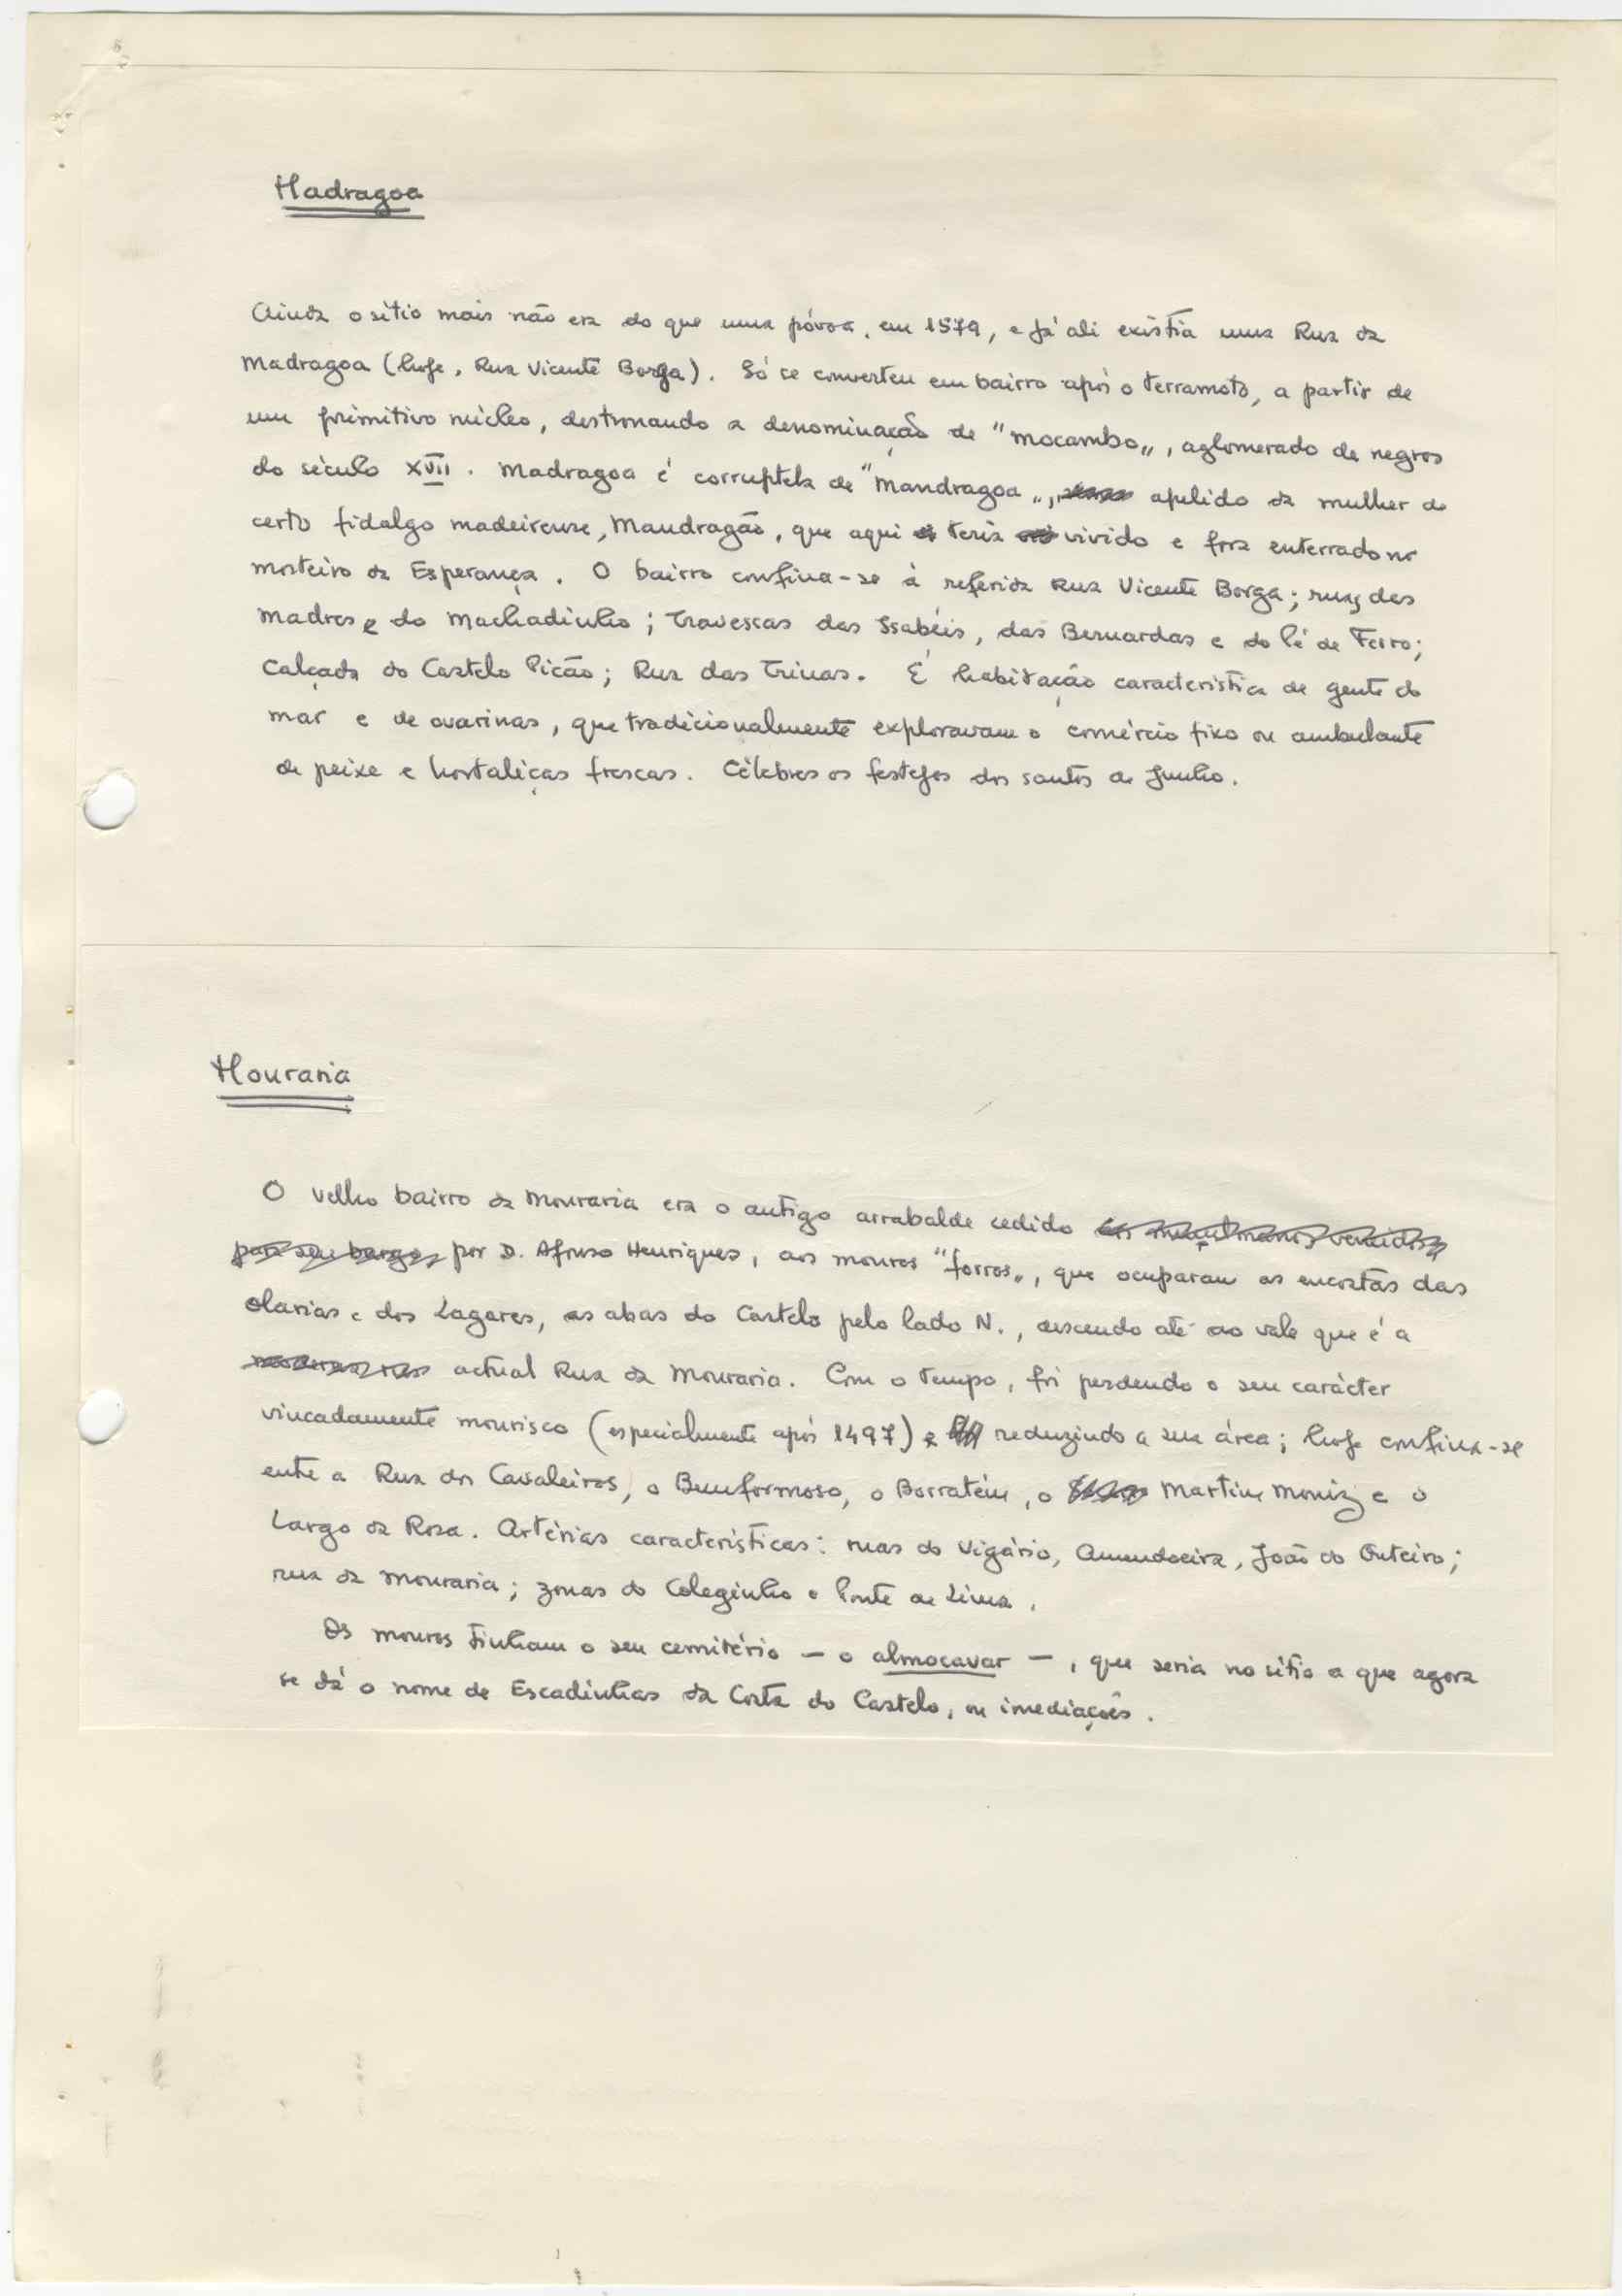 Madragoa
Ainda o sítio mais não era do que uma póvoa, em 1579, e já ali existia uma Rua da
Madragoa (hoje, Rua Vicente Borga). Só se converteu em bairro após o terramoto, a partir de
um primitivo núcleo, destronando a denominação de "Mocambo", aglomerado de negros
do século XVII. Madragoa é corruptela de "Mandragoa", apelido da mulher de
certo fidalgo madeirense, Mandragão, que aqui teria vivido e fora enterrado no
mosteiro da Esperança. O bairro confina-se à referida Rua Vicente Borga; ruas das
Madres e do Machadinho; Travessas das Isabéis, das Bernardas e do Pé de Ferro;
Calçada do Castelo Picão; Rua das Trinas. É habitação característica de gente do
mar e de ovarinas, que tradicionalmente exploravam o comércio fixo ou ambulante
de peixe e hortaliças frescas. Célebres os festejos dos santos de Junho.
Mouraria
O velho bairro da Mouraria era o antigo arrabalde cedido aos muçulmanos vencidos
para seu burgo, por D. Afonso Henriques, aos mouros "forros", que ocuparam as encostas das
Olarias e dos Lagares, as abas do Castelo pelo lado N., descendo até ao vale que é a
actual Rua da Mouraria. Com o tempo, foi perdendo o seu carácter
vincadamente mourisco (especialmente após 1497) e reduzindo a sua área; hoje confina-se
entre a Rua dos Cavaleiros, o Benformoso, o Borratém, o Martim Moniz e o
Largo da Rosa. Artérias características: ruas do Vigário, Amendoeira, João do Outeiro;
rua da Mouraria; zonas do Coleginho e Ponte de Lima.
Os mouros tinham o seu cemitério — o almocavar —, que seria no sítio a que agora
se dá o nome de Escadinhas da Costa do Castelo, ou imediações.